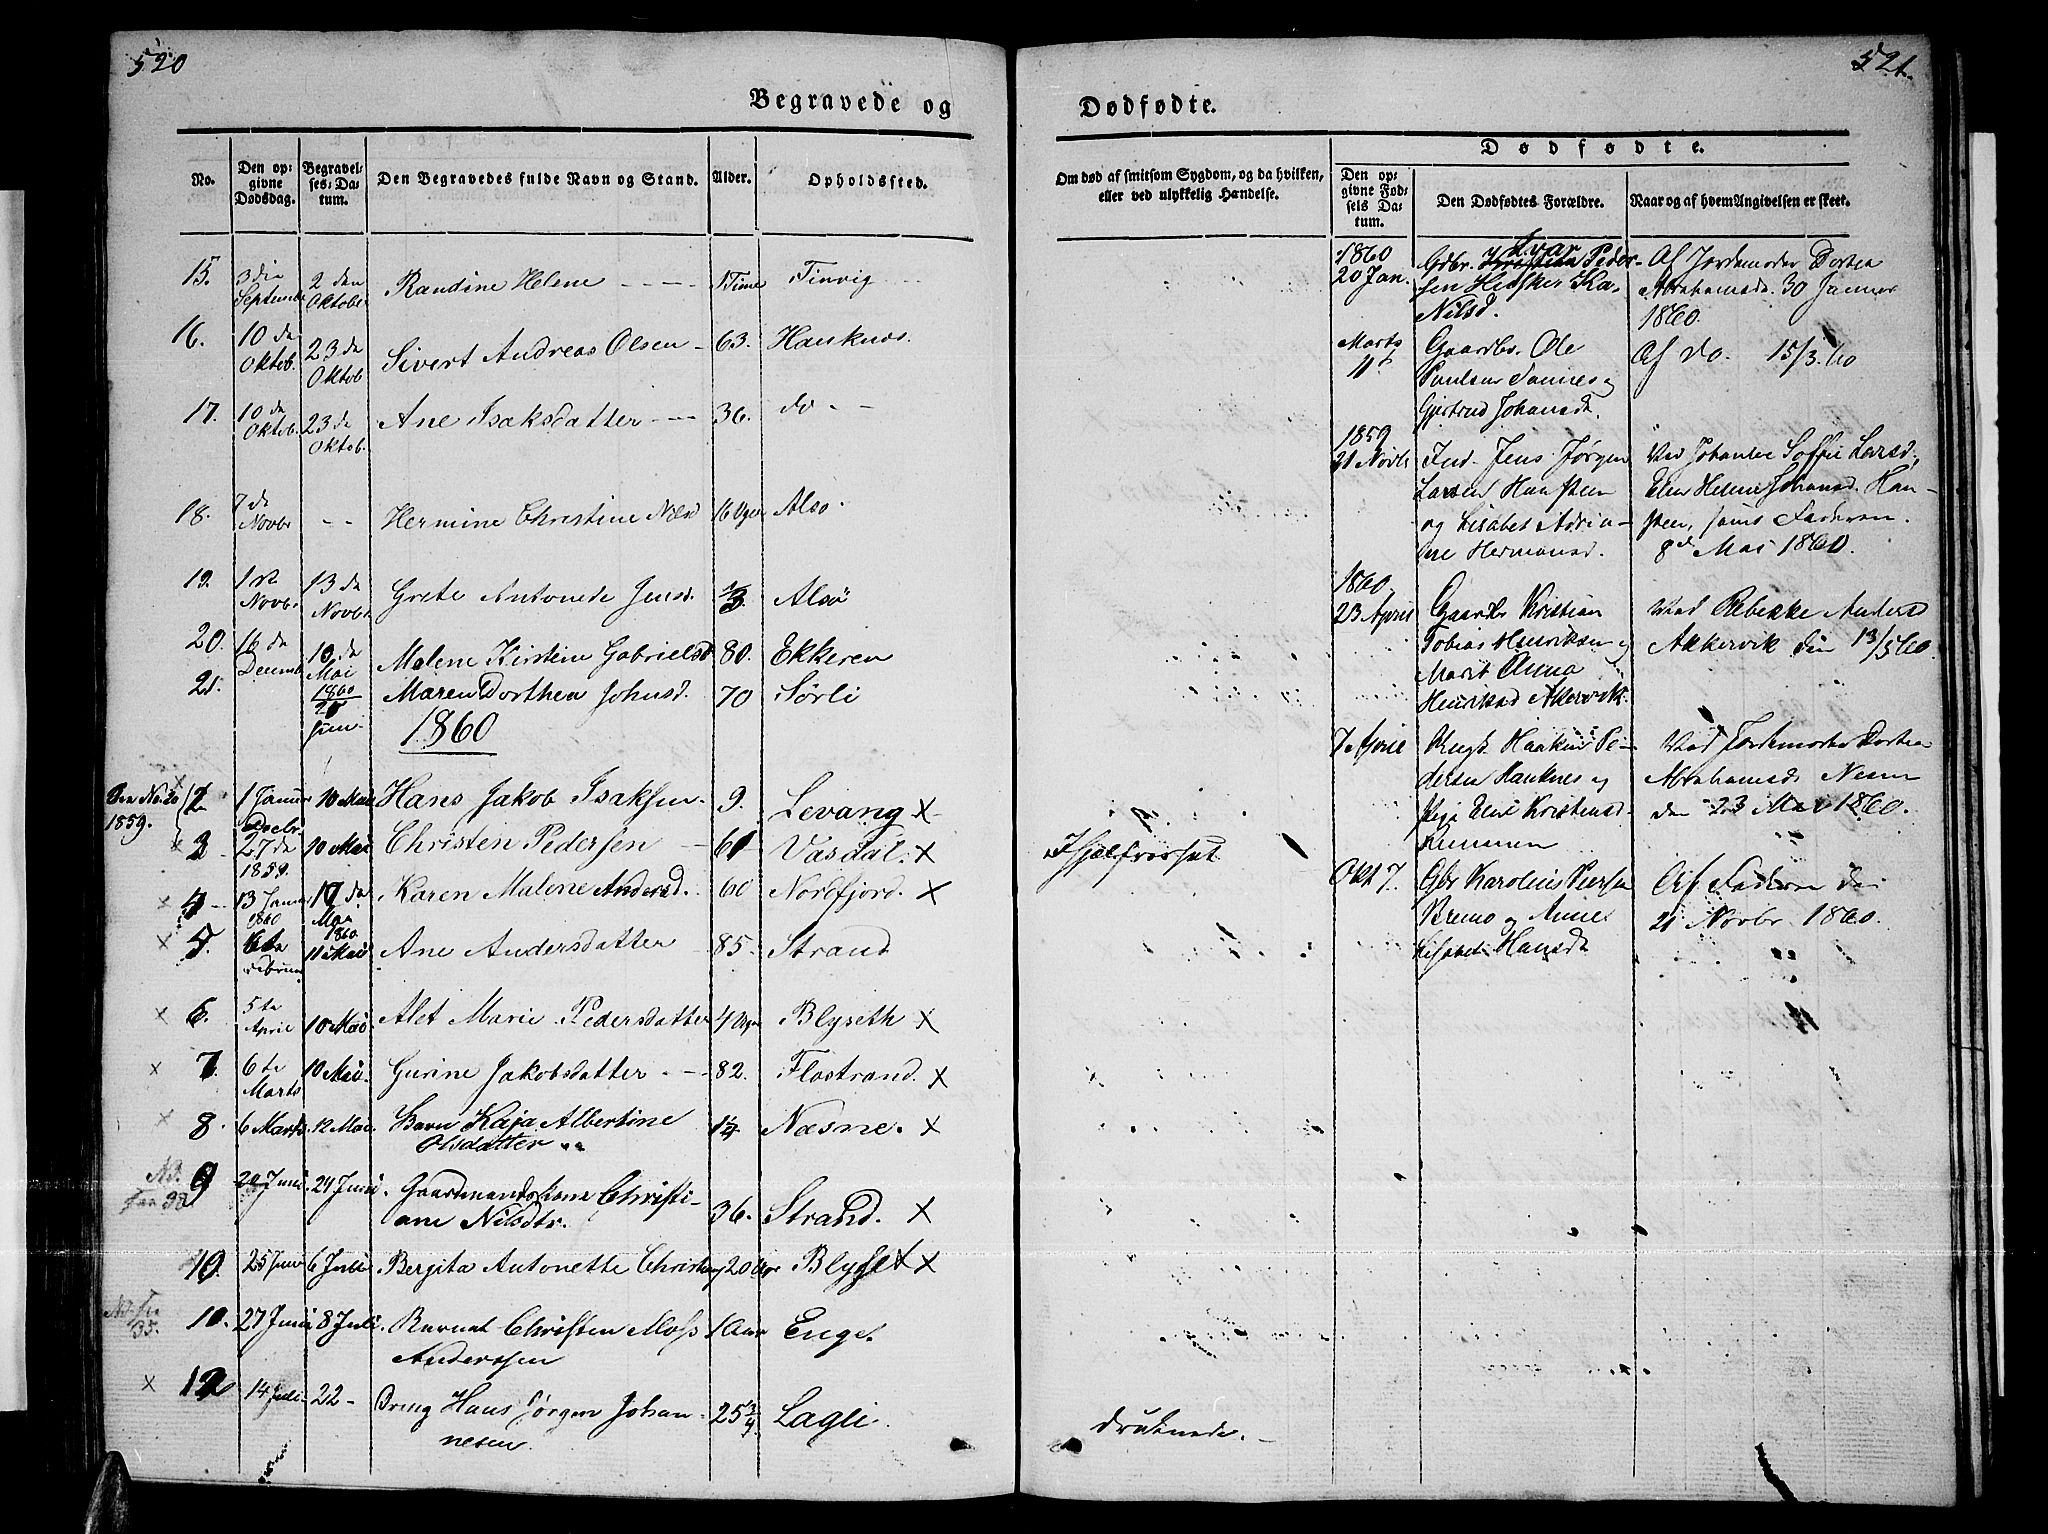 520
Begravede og
No.
Den opgivne Dødsdag.
Begravelses-Datum.
Den Begravedes fulde Navn og Stand.
Alder.
Opholdssted.
15. 3die Septembr 2 den Oktobr. Randine Helene 1 Time Finvig
16. 10 de Oktob. 23 de Oktob Sivert Andreas Olsen 63. Hauknæs.
17. 10 de Oktob. 23 de Oktob. Ane Isaksdatter 36. do
18. 7 de Novbr - - Hermine Christine Næsd 16 Uger Alsø.
19. 1ste Novbr. 13 de Novbr Grete Antonede Jensd. Alsö
20. 16 de Decemb 10 de Mai 1860 Malene Kirstine Gabrielsd 80. Ekkeren
21. Juni Maren Dorthea Johnsd. 70 Sörli
1860
Den No. 20 1859. 2 1 Januar 10 Mai Hans Jakob Isaksen. 9. Levang x
3 Decbr. 27 de 1859. 10 Mai Christen Pedersen 61 Vasdal. x
x 4 13 Januar 1860 17 de Mai 1860 Karen Malene Andersd. 60 Nordfjord. x
x 5. 6te Februar 11 Mai Ane Andersdatter 85. Strand
x 6. 5te April 10 Mai. Alet Marie Pedersdatter 4 Uger Blyseth x
x 7. 6te Marts 10 Mai. Gurine Jakobsdatter 82. Flostrand. x
x 8. 6 Marts. 12 Mai. Barn Kaja Albertine Olsdatter Næsne. x
9 20 Juni. 24 Juni. Gaardmandskone Christiane Nilsdtr. 36. Strand. x
10. 25 Juni 6 Juli Bergita Antonette Christens 20 Uger Blyset x
35. 11. 27 Juni 8 Juli. Barnet Christen Moss Anderssen 1 Aar Enge.
x 12 14 Juli 22 - Dreng Hans Jørgen Johannesen. 25 3/4 Lagli.
521.
Dødfødte.
Om død af smitsom Sygdom, og da hvilken, eller ved ulykkelig Hændelse.
Dødfødte.
Den opgivne Fødsels Datum.
Den Dødfødtes Forældre.
Naar og af hvem Angivelsen er skeet.
1860 20 Jan. Gdbr. Ivar Pedersen Nilsd. Af Jordemoder Dortea Abrahamsd. 30 Januar 1860.
Marts 11te Gaardbr. Ole Paulsen Sannes og Gjertrud Johansdt. Af do. 15/3. 60
1859 21 Novbr Ind. Jens Jørgen Larsen Haugsteen og Lisabet Adriane Hermansd. Ved Johanne Soffie Larsd, Elen Helene Johansd. Hansteen, samt Faderen. 8de Mai 1860.
1860 23 April Gaardbr Kristian Tobias Henriksen og Marit Anna Henriksd Akkervik. Ved Rebekke Andersd Akkervik den 13/5 60.
7 April Ungk. Haakon Pedersen Hauknes og Pige Elen Kristensd. Ved Jordemoder Dortea Abrahamsd. Nesna den 23 Mai 1860.
Ihjelfrosset
Okt 7. Gbr Karolius Persen Bremo og Anne Lisabet Hansdt Af Faderen den 21 Novbr. 1860.
druknede.